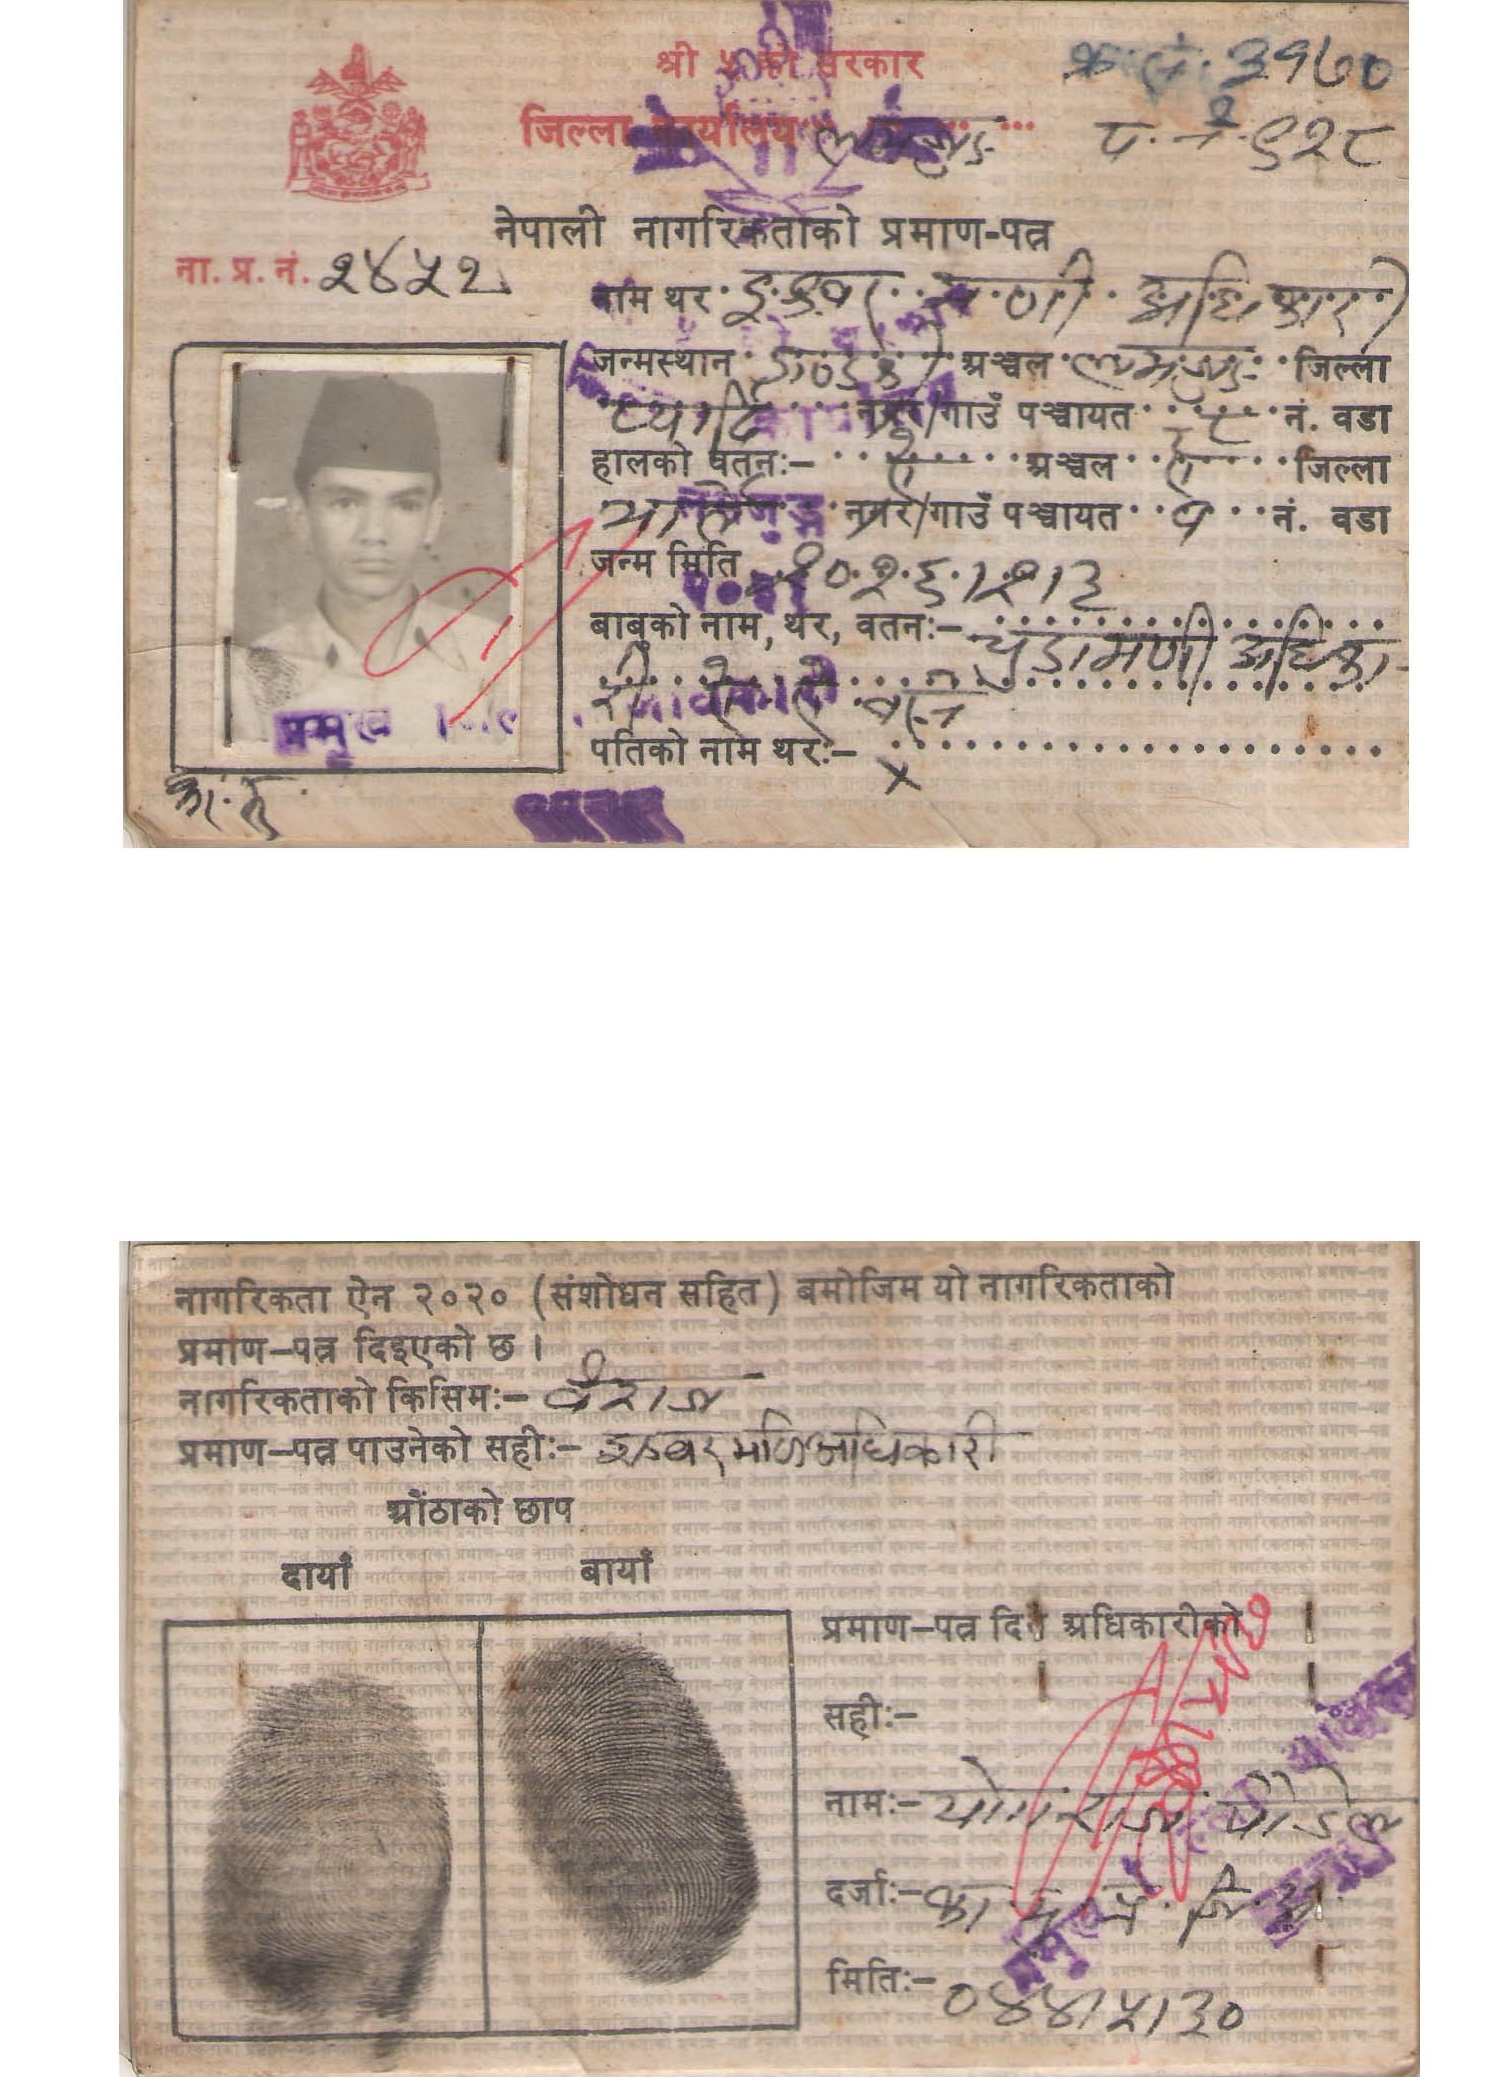 श्री ५ को सरकार
क्र. नं. ३१७०
जिल्ला कार्यालय लमजुङ
प. नं. ९२८
नेपाली नागरिकताको प्रमाण-पत्र
ना. प्र. नं. २४५२
नाम थर ईश्वर मणी अधिकारी
जन्मस्थान गण्डकी अञ्चल लमजुङ जिल्ला
नगर/गाउँ पञ्चायत ८ नं. वडा
हालको वतनः- ऐ अञ्चल ऐ जिल्ला
नगर/गाउँ पञ्चायत नं. वडा
जन्म मिति
बाबुको नाम, थर, वतनः- चुडामणी अधिका
री ऐ ऐ बस्ने
पतिको नाम थरः- x
प्रमुख
नागरिकता ऐन २०२० (संशोधन सहित) बमोजिम यो नागरिकताको
प्रमाण-पत्र दिइएको छ ।
नागरिकताको किसिमः- वंशज
प्रमाण-पत्र पाउनेको सहीः- इश्वर मणि अधिकारी
औंठाको छाप
दायाँ बायाँ
प्रमाण-पत्र दिने अधिकारीको
सहीः-
नामः- योग राज पौडेल
दर्जाः- का. मु. प्र. जि. अ.
मितिः- ०४४।५।३०